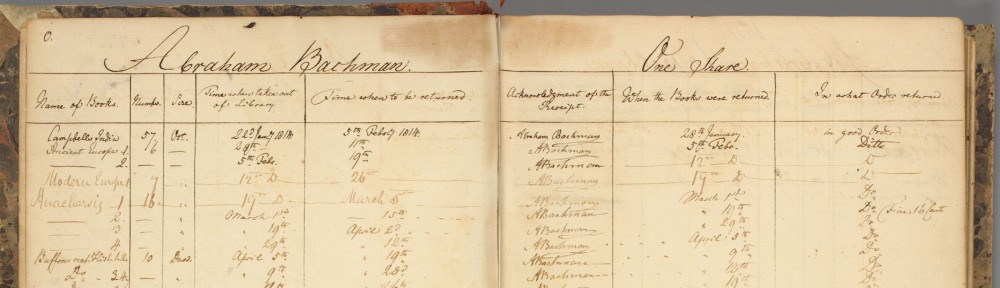 0.
Abraham Bachman. One Share
Name of Books. Numbs. Size. Time when taken out of Library Time when to be returned. Acknowledgment of the Receipt. When the Books were returned In what Order returned
Campbells India 57 Oct. 22d Jany 1814. 5th Febry 1814. Abraham Bachman 28th January. in good Order
Ancient Europe 1. 6 — 28th 11th ABachman 5th Febr. Ditto
2. — — 5th Febr. 19th ABachman 12th D D
Modern Europe 1 7 " 12th D 26th ABachman 19th D D
Anacharsis 1 16 " 19th D March 5th ABachman March 1st Do
2. — " March 1st 15th ABachman " 19th Do Fine 16 Cents
3 — " " 19th April 2d ABachman " 29th Do
4 — " 29th 12th ABachman April 5th Do
Buffons nat. 10 Duod. April 5th 19th ABachman " 9th Do
Do 34. — " " 9th " 23d ABachman Do